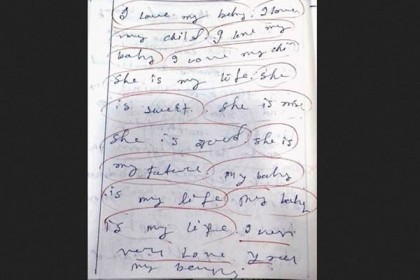 I love my baby. I love
my child. I love my
baby I love my chi
She is my life. She
is sweet. She is nise
She is good. She is
my future. my baby
is my life my baby
is my life. I
very Love
my